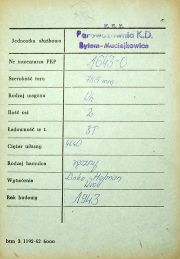 P.K.P.
Jednostka służbowa Parowozownia K.D.
Bytom-Maciejkowice
Nr inwentarza PKP 1643-0
Szerokość toru 785 mm
Rodzaj wagonu
Ilość osi 2
Ładowność w t. 8T
Ciężar własny 4640
Rodzaj hamulca ręczny
Wytwórnia Linke Hofman
Rok budowy 1943